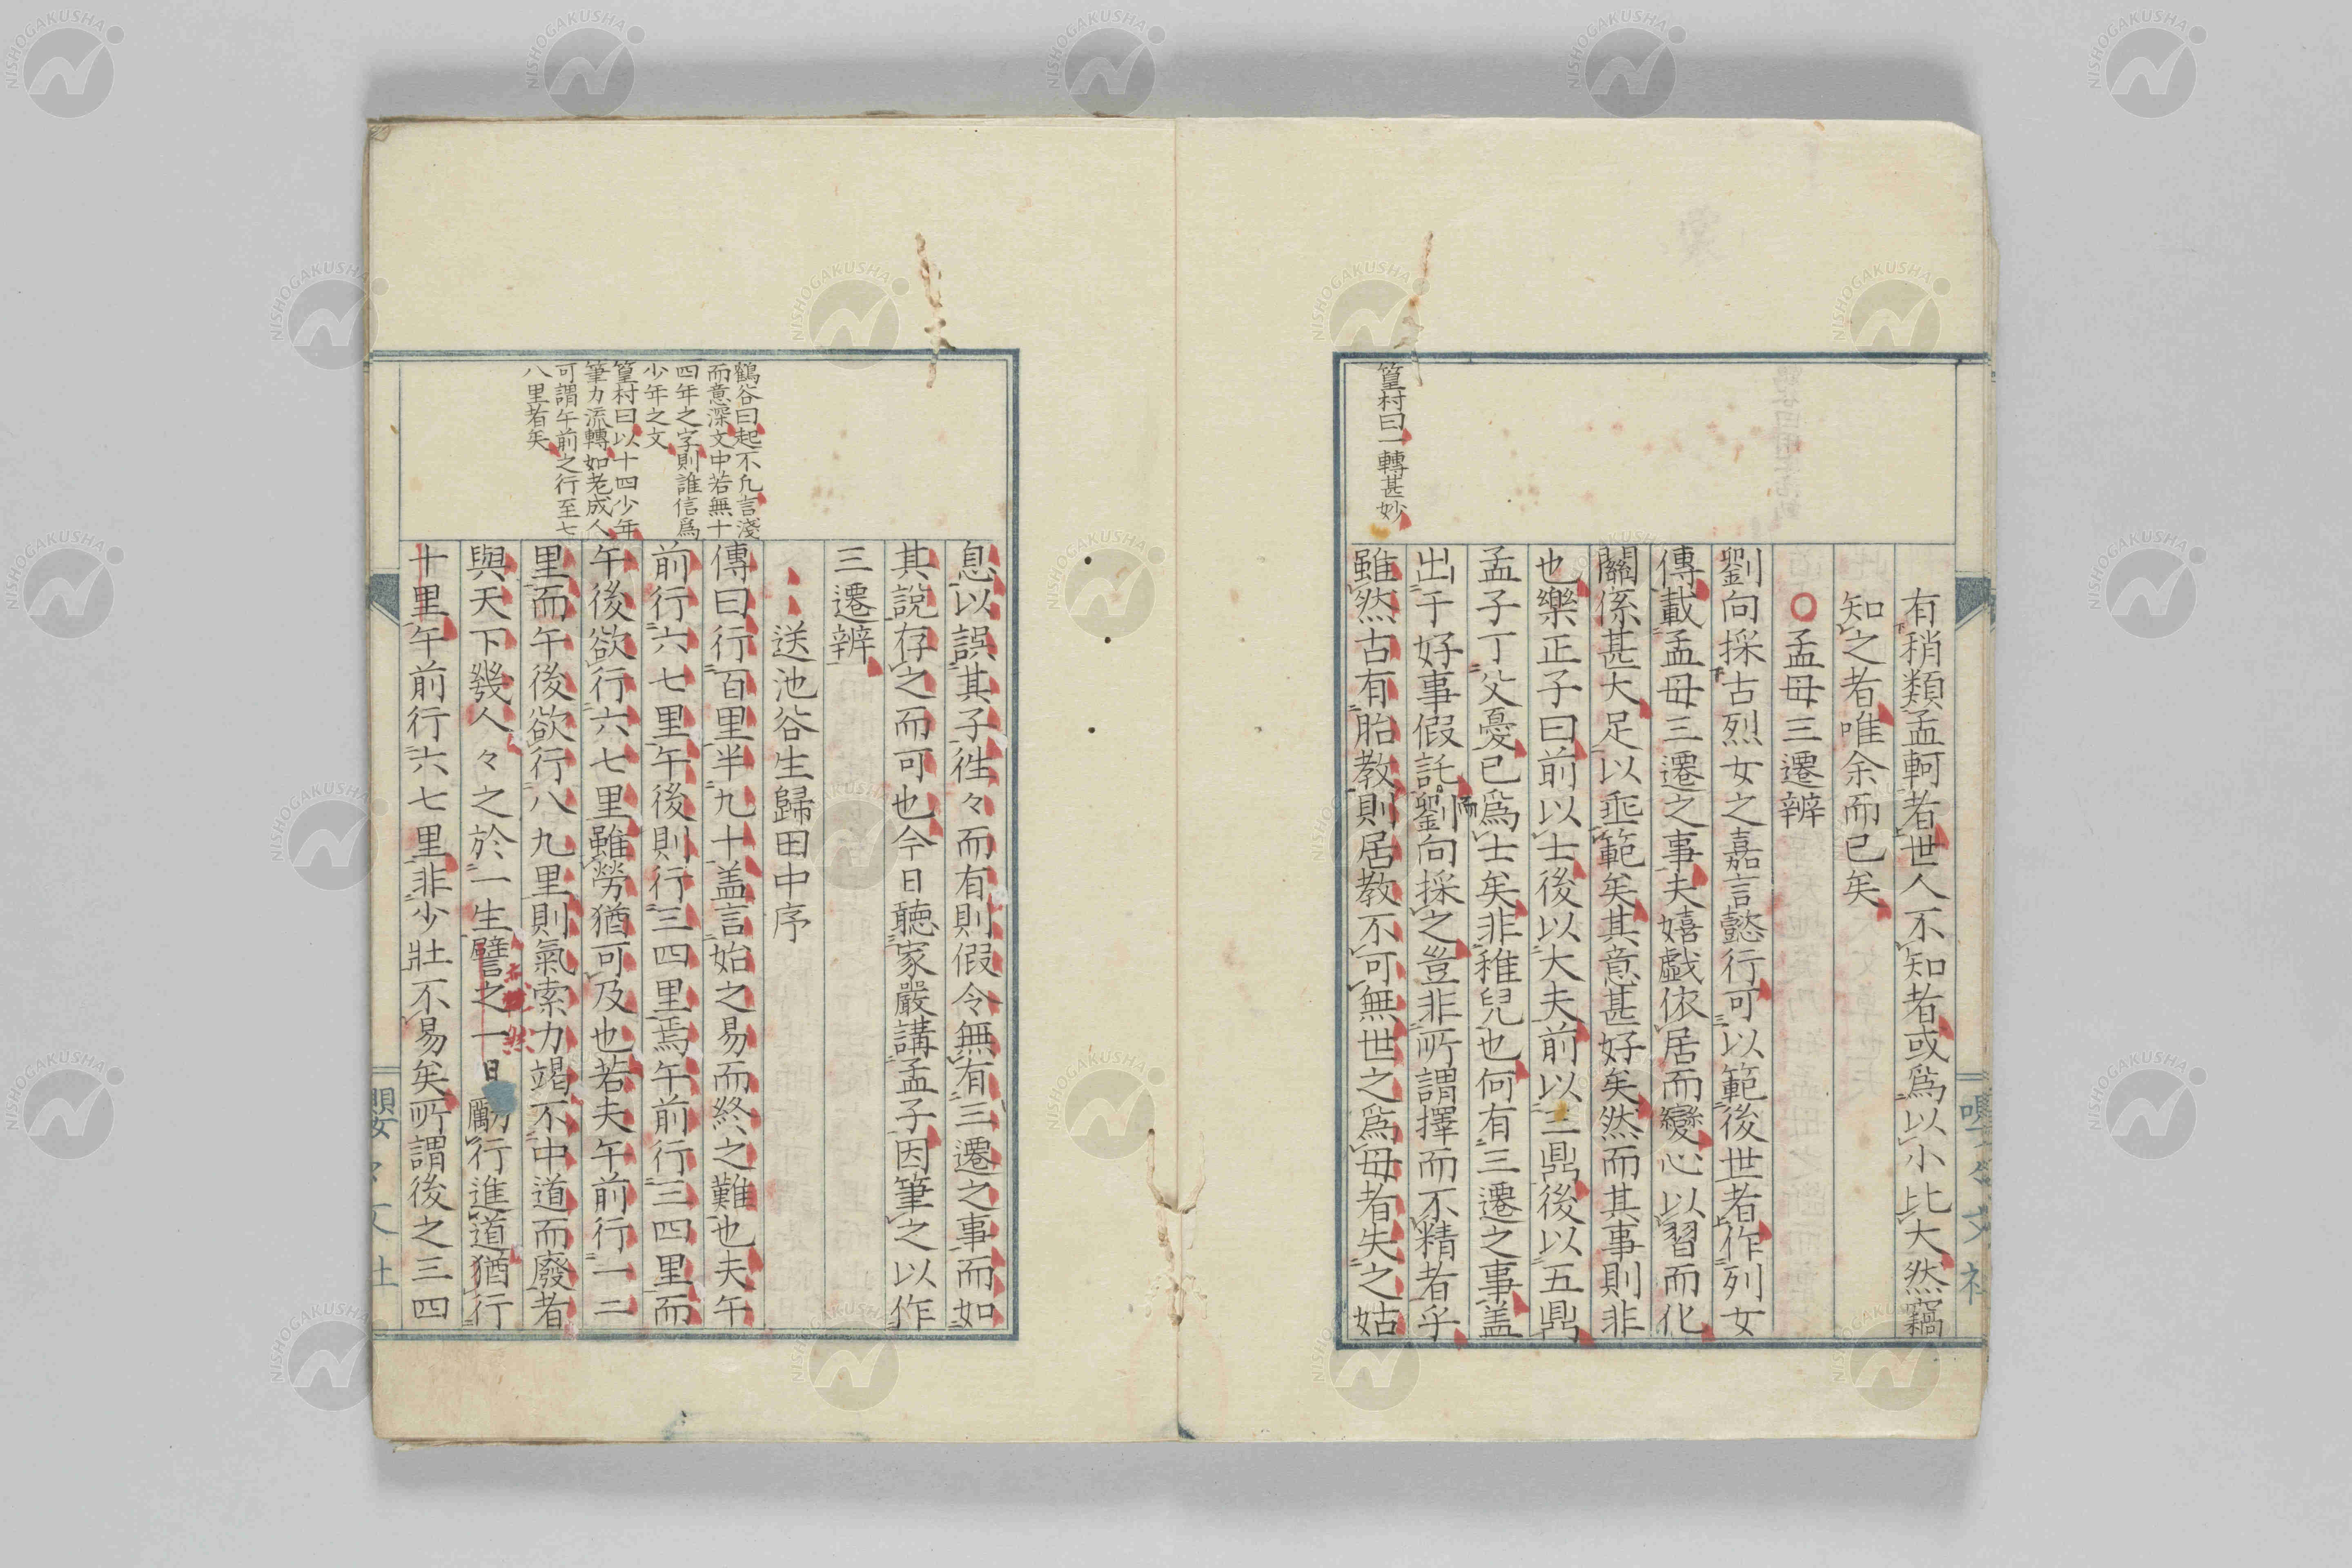 有稍類孟軻者世人不知者或爲以小比大然竊
知之者唯余而已矣
○孟母三遷辨
劉向採古烈女之嘉言懿行可以範後世者作列女
傳載孟母三遷之事夫嬉戯依居而變心以習而化
關係甚大足以垂範矣其意甚好矣然而其事則非
也樂正子曰前以士後以大夫前以三鼎後以五鼎
孟子丁父憂已爲士矣非稚兒也何有三遷之事盖
出于好事假託而劉向採之豈非所謂擇而不精者乎
雖然古有胎教則居教不可無世之爲母者失之姑
篁村曰一轉甚妙
息以誤其子徃々而有則假令無有三遷之事而如
其說存之而可也今日聽家嚴講孟子因筆之以作
三遷辨
送池谷生歸田中序
傳曰行百里半九十盖言始之易而終之難也夫午
前行六七里午後則行三四里焉午前行三四里而
午後欲行六七里雖勞猶可及也若夫午前行一二
里而午後欲行八九里則氣索力竭不中道而廢者
與天下幾人々之於一生譬之一日勵行進道猶行
十里午前行六七里非少壯不易矣所謂後之三四
鶴谷曰起不凡言淺
而意深文中若無十
四年之字則誰信爲
少年之文
篁村曰以十四少年
筆力流轉如老成人
可謂午前之行至七
八里者矣
NISHOGAKUSHA